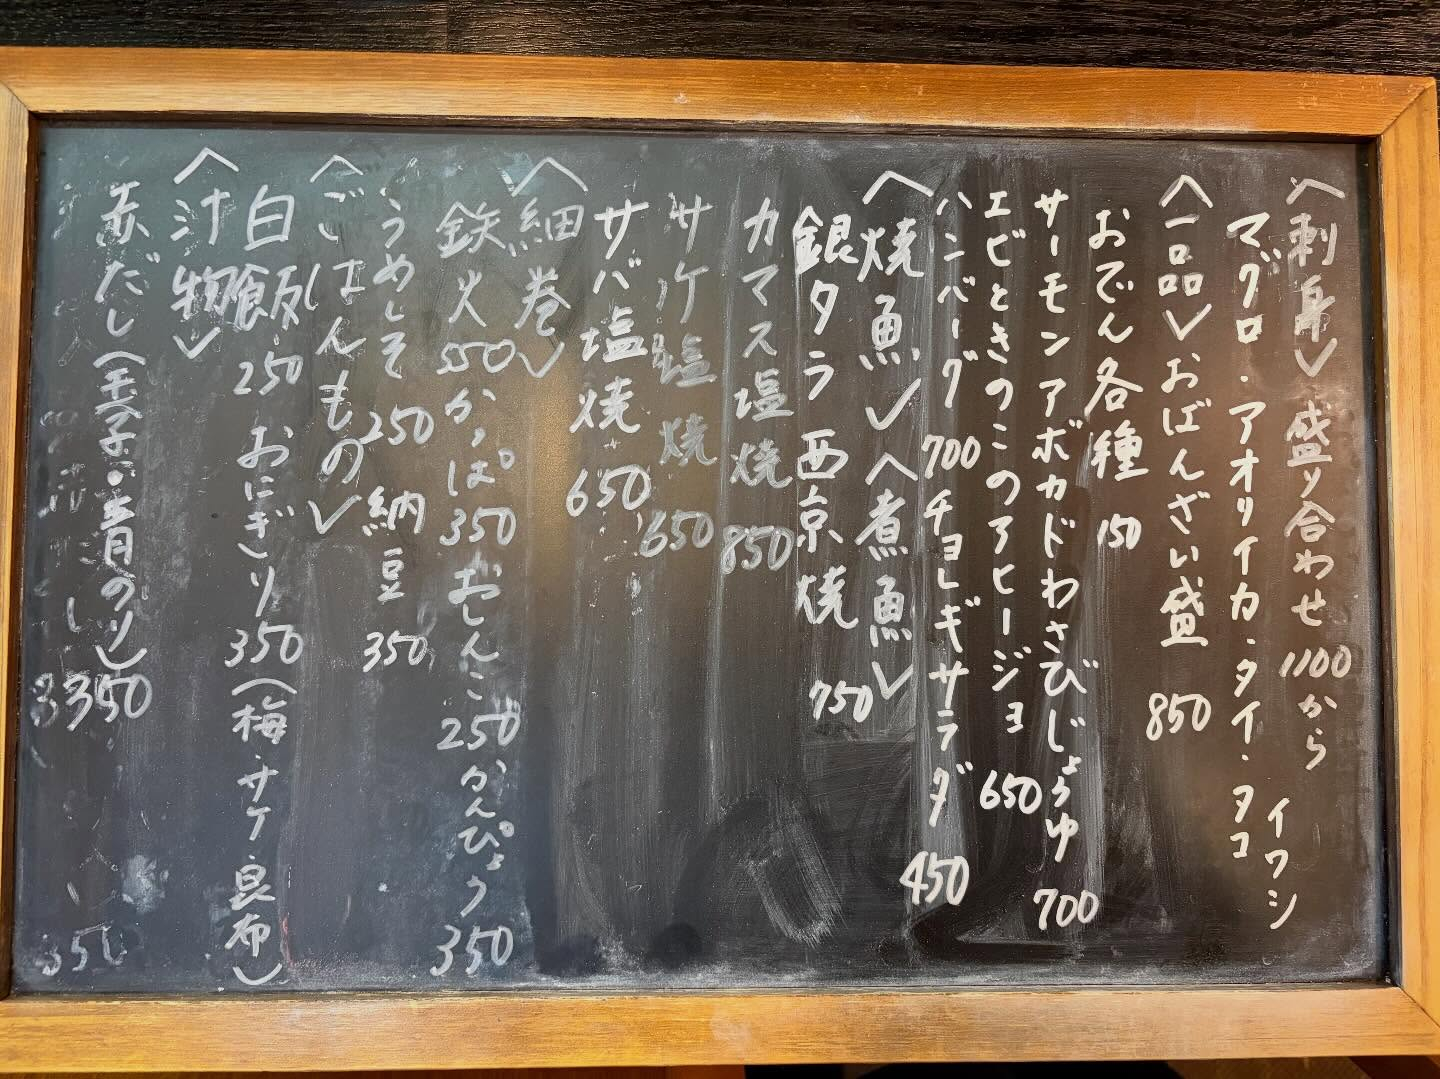 〈刺身〉盛り合わせ 1100から
マグロ・アオリイカ・タイ・タコ
イワシ
〈一品〉おばんざい盛 850
おでん各種 150
サーモンアボカドわさびじょうゆ 700
エビときのこのアヒージョ 650
ハンバーグ 700 チョレギサラダ 450
〈焼魚〉〈煮魚〉
銀タラ西京焼 750
カマス塩焼 850
サケ塩焼 650
サバ塩焼 650
〈細巻〉
鉄火 550 かっぱ 350 おしんこ 250 かんぴょう 350
うめしそ 250 納豆 350
〈ごはんもの〉
白飯 250 おにぎり 350 (梅・サケ・昆布)
〈汁物〉
赤だし(玉子・青のり) 350